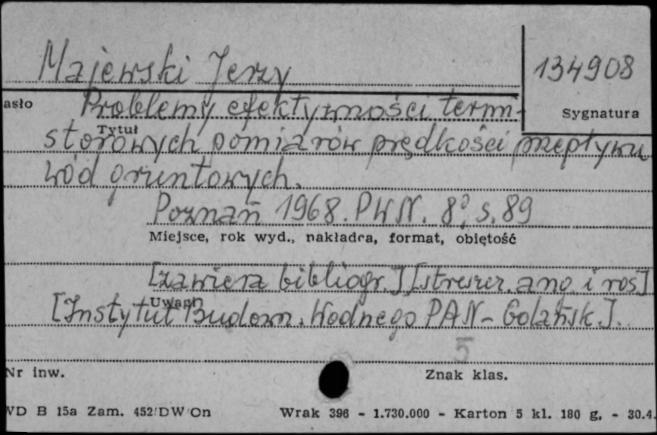 Majewski Jerzy
134908
asło
Sygnatura
Problemy efektywności termi-
Tytuł
storowych pomiarów prędkości przepływu
wód gruntowych.
Poznań 1968. PWN. 8°, s. 89
Miejsce, rok wyd., nakładca, format, objętość
[zawiera bibliogr.] [streszcz. ang i ros]
Uwagi
[Instytut Budown. Wodnego PAN - Gdańsk].
5
Nr inw.
Znak klas.
WD B 15a Zam. 452/DW/On
Wrak 396 - 1.730.000 - Karton 5 kl. 180 g. - 30.4.